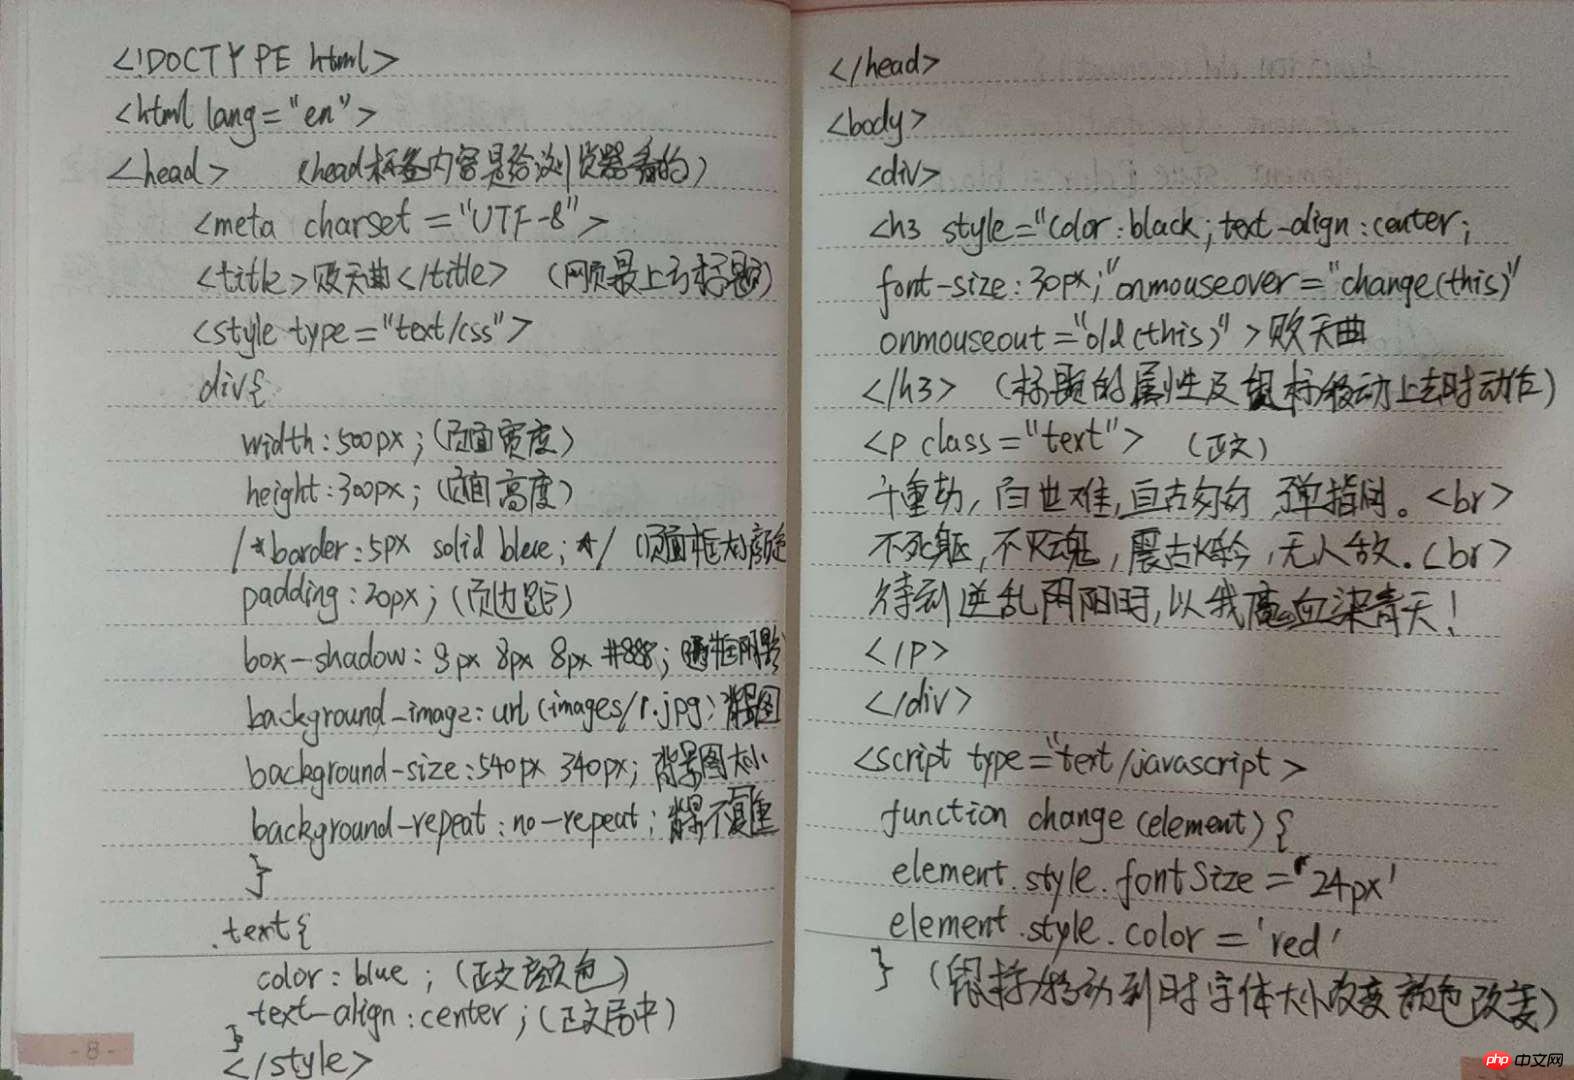 <!DOCTYPE html>
<html lang="en">
<head> (head标签内容是给浏览器看的)
<meta charset="UTF-8">
<title>败天曲</title> (网页最上方标题)
<style type="text/css">
div{
width:500px;(页面宽度)
height:300px;(页面高度)
/*border:5px solid blue;*/ (页面框大颜色
padding:20px;(页边距)
box-shadow: 9px 8px 8px #888; 框阴影
background-image: url(images/1.jpg) 背景图
background-size:540px 340px; 背景图大小
background-repeat:no-repeat; 背景不复重
}
.text{
color: blue ;(正文颜色)
text-align:center;(正文居中)
}
</style>
-8-
</head>
<body>
<div>
<h3 style="color:black;text-align:center;
font-size:30px;"onmouseover="change(this)"
onmouseout="old(this)">败天曲
</h3> (标题的属性及鼠标移动上去时动作)
<p class="text"> (正文)
千重劫,百世难,亘古匆匆 弹指间。<br>
不死躯,不灭魂,震古烁今,无人敌.<br>
待到逆乱阴阳时,以我魔血染青天!
</p>
</div>
<script type="text/javascript>
function change(element){
element.style.fontSize='24px'
element.style.color='red'
} (鼠标移动到时字体大小改变 颜色改变)
php 中文网